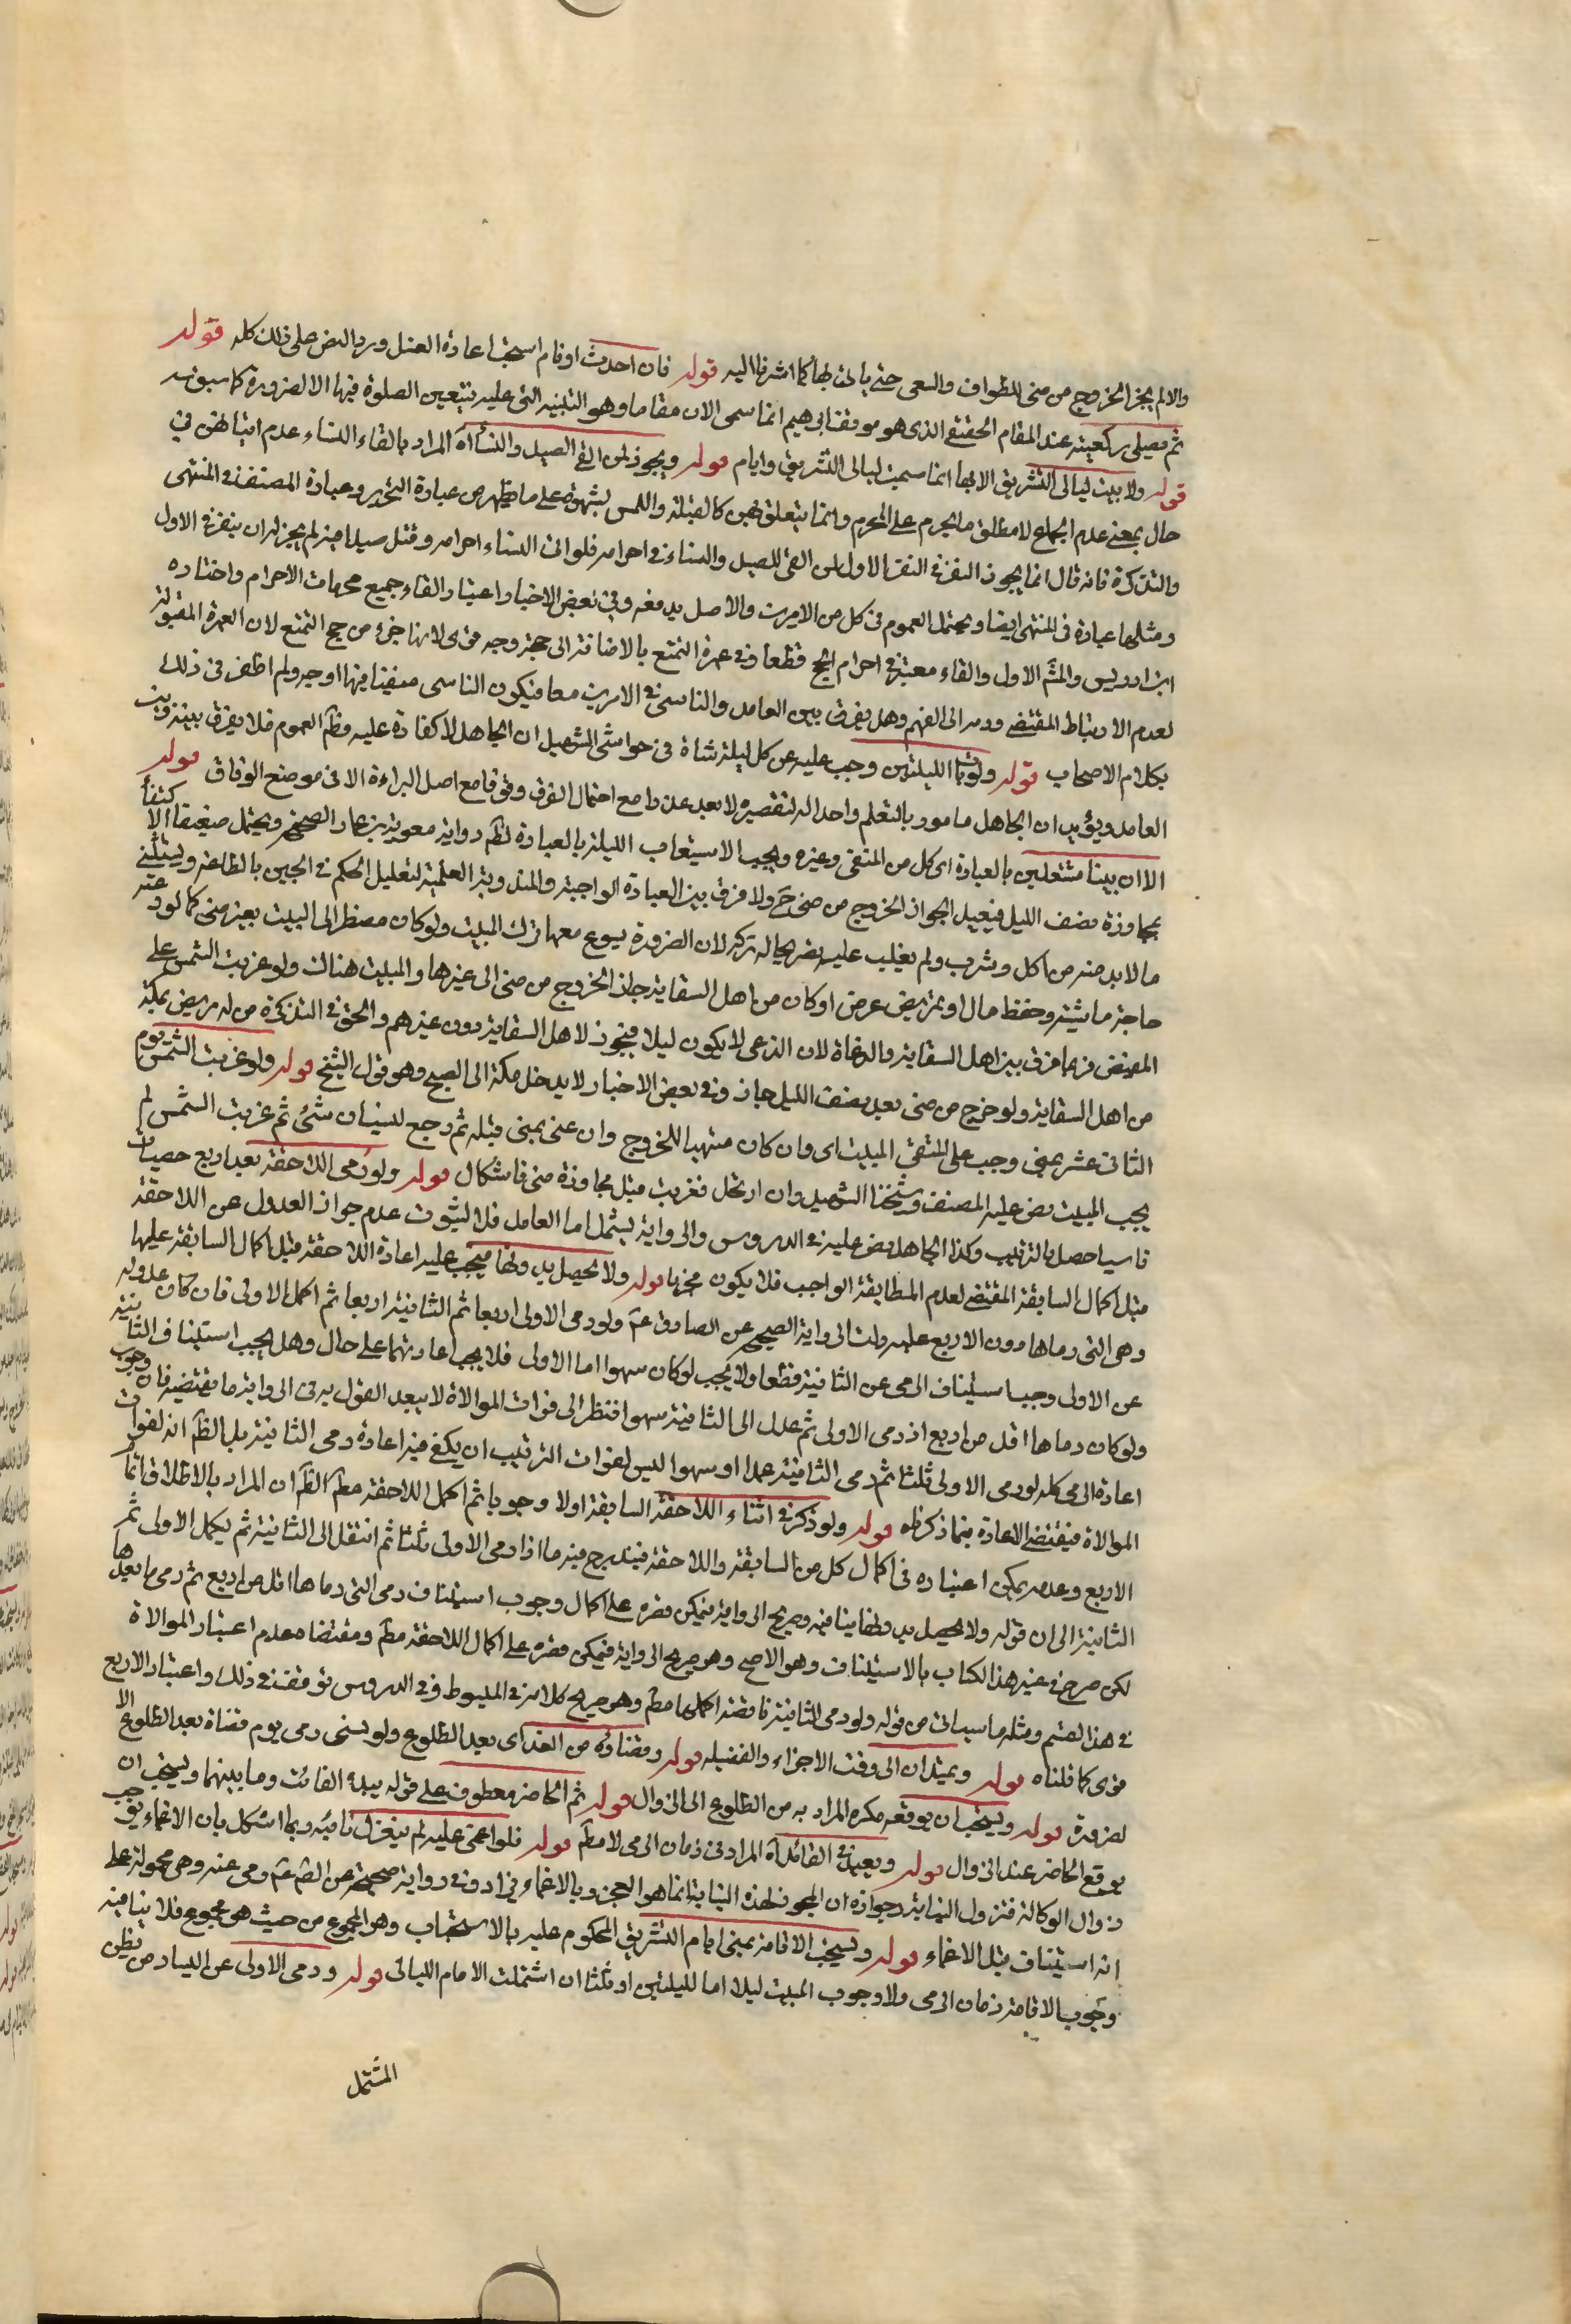 والا لم يجز الخروج من منى للطواف والسعى حتى يأذن لها كما اشرنا اليه قوله فان احدث او نام استحب اعادة الغسل ورد النص على ذلك كله قوله
ثم يصلى ركعتيه عند المقام الحقيقى الذى هو موقف ابرهيم انما سمى الان مقاما وهو التبنيه التى عليه يتعين الصلوة فيها الا لضرورة كما سبق
قوله ولا يبيت ليالى التشريق الا بها انما سميت ليالى التشريق وايام قوله ويجوز لمن اتقى الصيد والنساء اه المراد باتقاء النساء عدم اتيانهن فى
حال بمعنى عدم الجماع لا مطلق ما يحرم على المحرم وانما يتعلق بهن كالقبلة واللمس بشهوة على ما يظهر من عبارة التحرير وعبارة المصنف فى المنتهى
والتذكرة فانه قال انما يجوز النفر فى النفر الاول لمن اتقى الصيد والنساء فى احرامه فلو اتى النساء فى احرامه وقتل صيدا فيه لم يجز له ان ينفر فى الاول
ومثلها عبارة فى المنتهى ايضا ويحتمل العموم فى كل من الامرين والاصل يدفعه وفى بعض الاخبار اعتبار اتقاء جميع محرمات الاحرام واختاره
ابن ادريس والمشهور الاول والاتقاء معتبر فى احرام الحج قطعا وفى عمرة التمتع بالاضافة الى حجه وجه قوى لانها جزء من حج التمتع لا العمرة المفردة
لعدم الارتباط المقتضى ودم الى الفهم وهل يفرق بين العامد والناسى فى الامرين معا فيكون الناسى متقيا فيها اوجه ولم اظفر فى ذلك
بكلام الاصحاب قوله ولو بات الليلتين وجب عليه عن كل ليلة شاة فى حواشى الشهيد ان الجاهل لا كفارة عليه وظاهر العموم فلا يفرق بينه وبين
العامد ويؤيده ان الجاهل مأمور بالتعلم واحداله لتقصيره لا يعد عذرا مع احتمال الفرق وقوفا مع اصل البراءة الا فى موضع الوفاق قوله
الا ان يبيتا مشتغلين بالعبادة اى كل من المتقى وغيره ويجب الاستيعاب الليلة بالعبادة لظاهر رواية معوية بن عمار الصحيحة ويحتمل ضعيفا الاكتفاء
بمجاوزة نصف الليل فيفيد الجواز الخروج من منى ح ولا فرق بين العبادة الواجبة والمندوبة العلمية لتعليل الحكم فى الخبر بالطاعة ويستثنى
ما لا بد منه من اكل وشرب ولم يغلب عليه يضر بحاله تركه لان الضرورة يسوغ معها ترك المبيت ولو كان مضطرا الى المبيت بغير منى كما لو
حاجة ماشية وحفظ مال او تمريض عرض او كان من اهل السقاية جاز الخروج من منى الى غيرها والمبيت هناك ولو غربت الشمس على
المريض فرعا فرق بين اهل السقاية والرعاة لان الرعى لا يكون ليلا فيجوز لاهل السقاية دون غيرهم والحق فى التذكرة من له مريض بمكة
من اهل السقاية ولو خرج من منى بعد نصف الليل جاز وفى بعض الاخبار لا يدخل مكة الى الصبح وهو قول الشيخ قوله ولو غربت الشمس يوم
الثانى عشر بمنى وجب على المتقى المبيت اى وان كان متهيأ للخروج وان عنى بمنى قبله ثم رجع لنسيان شئ ثم غربت الشمس لم
يجب المبيت نص عليه المصنف وشيخنا الشهيد وان ارتحل فغربت قبل مجاوزة منى فاشكال قوله ولو رمى اللاحقة بعد اربع حصيات
ناسيا حصل بالترتيب وكذا الجاهل نص عليه فى الدروس والرواية يشمل اما العامد فلا لثبوت عدم جواز العدول عن اللاحقة
قبل اكمال السابقة المقتضى لعدم المطابقة الواجب فلا يكون مجزيا قوله ولا يحصل بدونها فيجب عليه اعادة اللاحقة قبل اكمال السابقة عليها
وهى التى رماها دون الاربع عليه دلت الرواية الصحيحة عن الصادق ع ولو رمى الاولى اربعا ثم الثانية اربعا ثم اكمل الاولى فان كان عدوله
عن الاولى وجب استيناف الرمى عن الثانية قطعا ولا يجب لو كان سهوا اما الاولى فلا يجب اعادتها على حال وهل يجب استيناف الثانية
ولو كان رماها اقل من اربع اذ رمى الاولى ثم عدل الى الثانية سهوا فنظر الى فوات الموالاة لا يبعد القول به وفى الرواية ما يقتضيه فان وجوب
اعادة الرمى كله لو رمى الاولى ثلثا ثم رمى الثانية عمدا او سهوا ليس لفوات الترتيب ان يكفى فيه اعادة رمى الثانية بل الظاهر انه لفوات
الموالاة فيقتضى الاعادة فيما ذكرناه قوله ولو ذكر فى اثناء اللاحقة السابقة اولا وجوبا ثم اكمل اللاحقة مطلقا الظاهر ان المراد بالاطلاق اتمام
الاربع وعدمه يمكن اعتباره فى اكمال كل من السابقة واللاحقة فيندرج فيه ما اذا رمى الاولى ثلثا ثم انتقل الى الثانية ثم يكمل الاولى ثم
الثانية الى ان قوله ولا يحصل بدونها ينافيه وصريح الرواية فيمكن قصره على اكمال وجوب استيناف رمى التى رماها اقل من اربع ثم رمى ما بعدها
لكن صرح فى غير هذا الكتاب بالاستيناف وهو الاصح وهو صريح الرواية فيمكن قصره على اكمال اللاحقة مطلقا ومقتضاه عدم اعتبار الموالاة
فى هذا القسم ومثله ما سيأتى من قوله ولو رمى الثانية ناقصة اكملها مطلقا وهو صريح كلامه فى المبسوط وفى الدروس توقف فى ذلك واعتبار الاربع
قوى كما قلناه قوله ويمتدان الى وقت الاجزاء والفضيلة قوله وقضاؤه من الغد اى بعد الطلوع ولو نسى رمى يوم قضاه بعد الطلوع الا
لضرورة قوله ويستحب ان يوقعه مكره المراد به من الطلوع الى الزوال قوله ثم الحاضر معطوف على قوله يبدء الفائت وما بينهما ويستحب ان
يوقع الحاضر عند الزوال قوله ويعيد فى القائد اه المراد فى زمان الرمى لا مطلقا قوله فلو اغمى عليه لم ينعزل نائبه ربما اشكل بان الاغماء يوجب
زوال الوكالة فتزول النيابة وجوازه ان المجوز لهذه النيابة انما هو العجز وبالاغماء يزداد وفى رواية صحيحة عن الصادق ع رمى عنه وهى محمولة على
انه استيناف قبل الاغماء قوله ويستحب الاقامة بمنى ايام التشريق المحكوم عليه بالاستحباب وهو المجموع من حيث هو مجموع فلا ينافيه
وجوب الاقامة زمان الرمى ولا وجوب المبيت ليلا اما لليلتين او ثلثا ان اشتملت الايام الليالى قوله ورمى الاولى عن اليسار من بطن
المشتمل